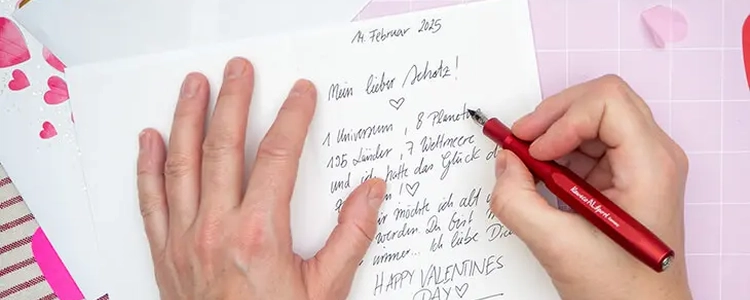 14. Februar 2025
Mein lieber Schatz!
1 Universum, 8 Planet
195 Länder, 7 Weltmeere
und ich hatte das Glück d
!
ir möchte ich alt w
werden. Du bist m
immer... Ich liebe Dic
HAPPY VALENTINES
DAY
Kaweco